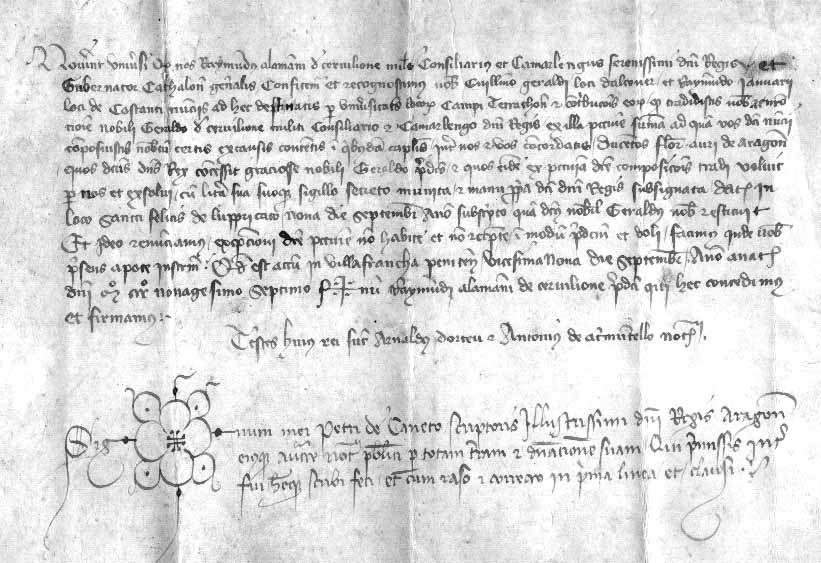 Noverint universi Qd nos Raymundus alamani de cervilione miles Consiliarius et Camarlengus serenissimi dni Regis et
Gubernator Cathalon gnalis Confitem et recognoscimus vob Guillmo geraldi loci dalcover et Raymundo Januarii
loci de Costanti nunciis ad hec destinatis p universitates locor Campi Terrachon qd tradidistis
nobili Geraldo de cervilione militi Consiliario et Camarlengo dni Regis ex illa pccunie suma ad qua vos dci nuncii
certis ex causis contentis i capitlis int nos et vos Ducetos flor auri de aragon
quos dictus dns Rex concessit graciose nobili Geraldo pdco et quos fide ex pccunia dce composicois tradi voluit
p nos et exsolvi cu lra sua suoq sigillo secreto munita et manu ppia dci dni Regis subsignata dat in
loco Sancti felicis de luppricato nona die septembr Ano subscripto qua dcus nobil Geraldus nob restituit
Et ideo renunciamus excepcioni dce pccunie no habite et no recepte i modu pdcm et doli facimus inde vob
psens apoce instrm Qd est actu in villafrancha peniten vicesima nona die septembr Ano anat
dni M CCC nonagesimo septimo S+num Raymundi alamani de cervilione pdci qui hec concedimus
et firmamus
Testes huius rei sut Arnaldus dorteu et Antonius de not
Sig num mei Petri de Caneto scriptoris Illustrissimi dni Regis Aragon
eiusq auctte not publici p totam terram et dnacione suam Qui pmissis intr
fui hecq scribi feci et cum raso et correcto in pma linea et clausi